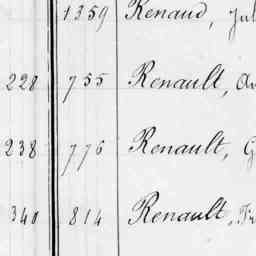 1359 Renaud, Jul
228 755 Renault,
238 776 Renault, G
340 814 Renault,